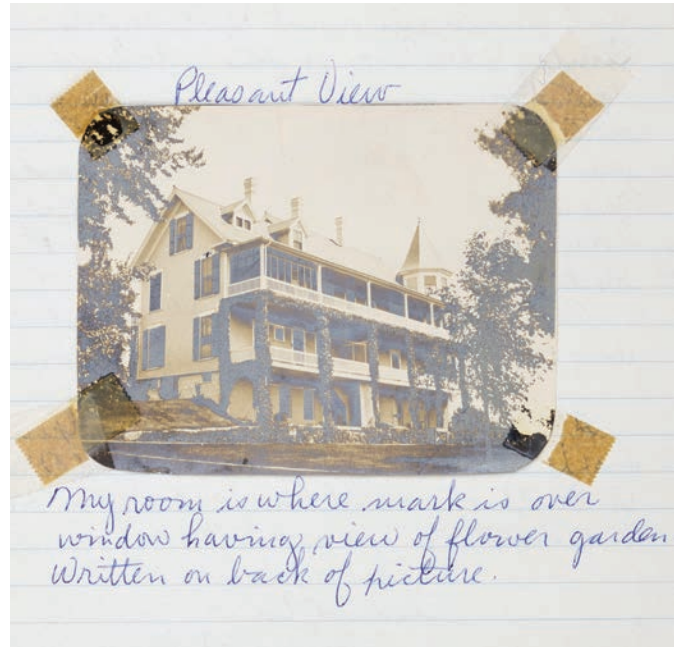 Pleasant View
My room is where mark is over
window having view of flower garden
Written on back of picture.